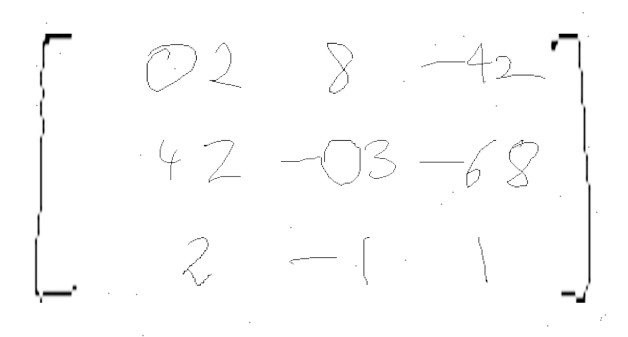 02 8 -42
42 -03 -68
2 -1 1